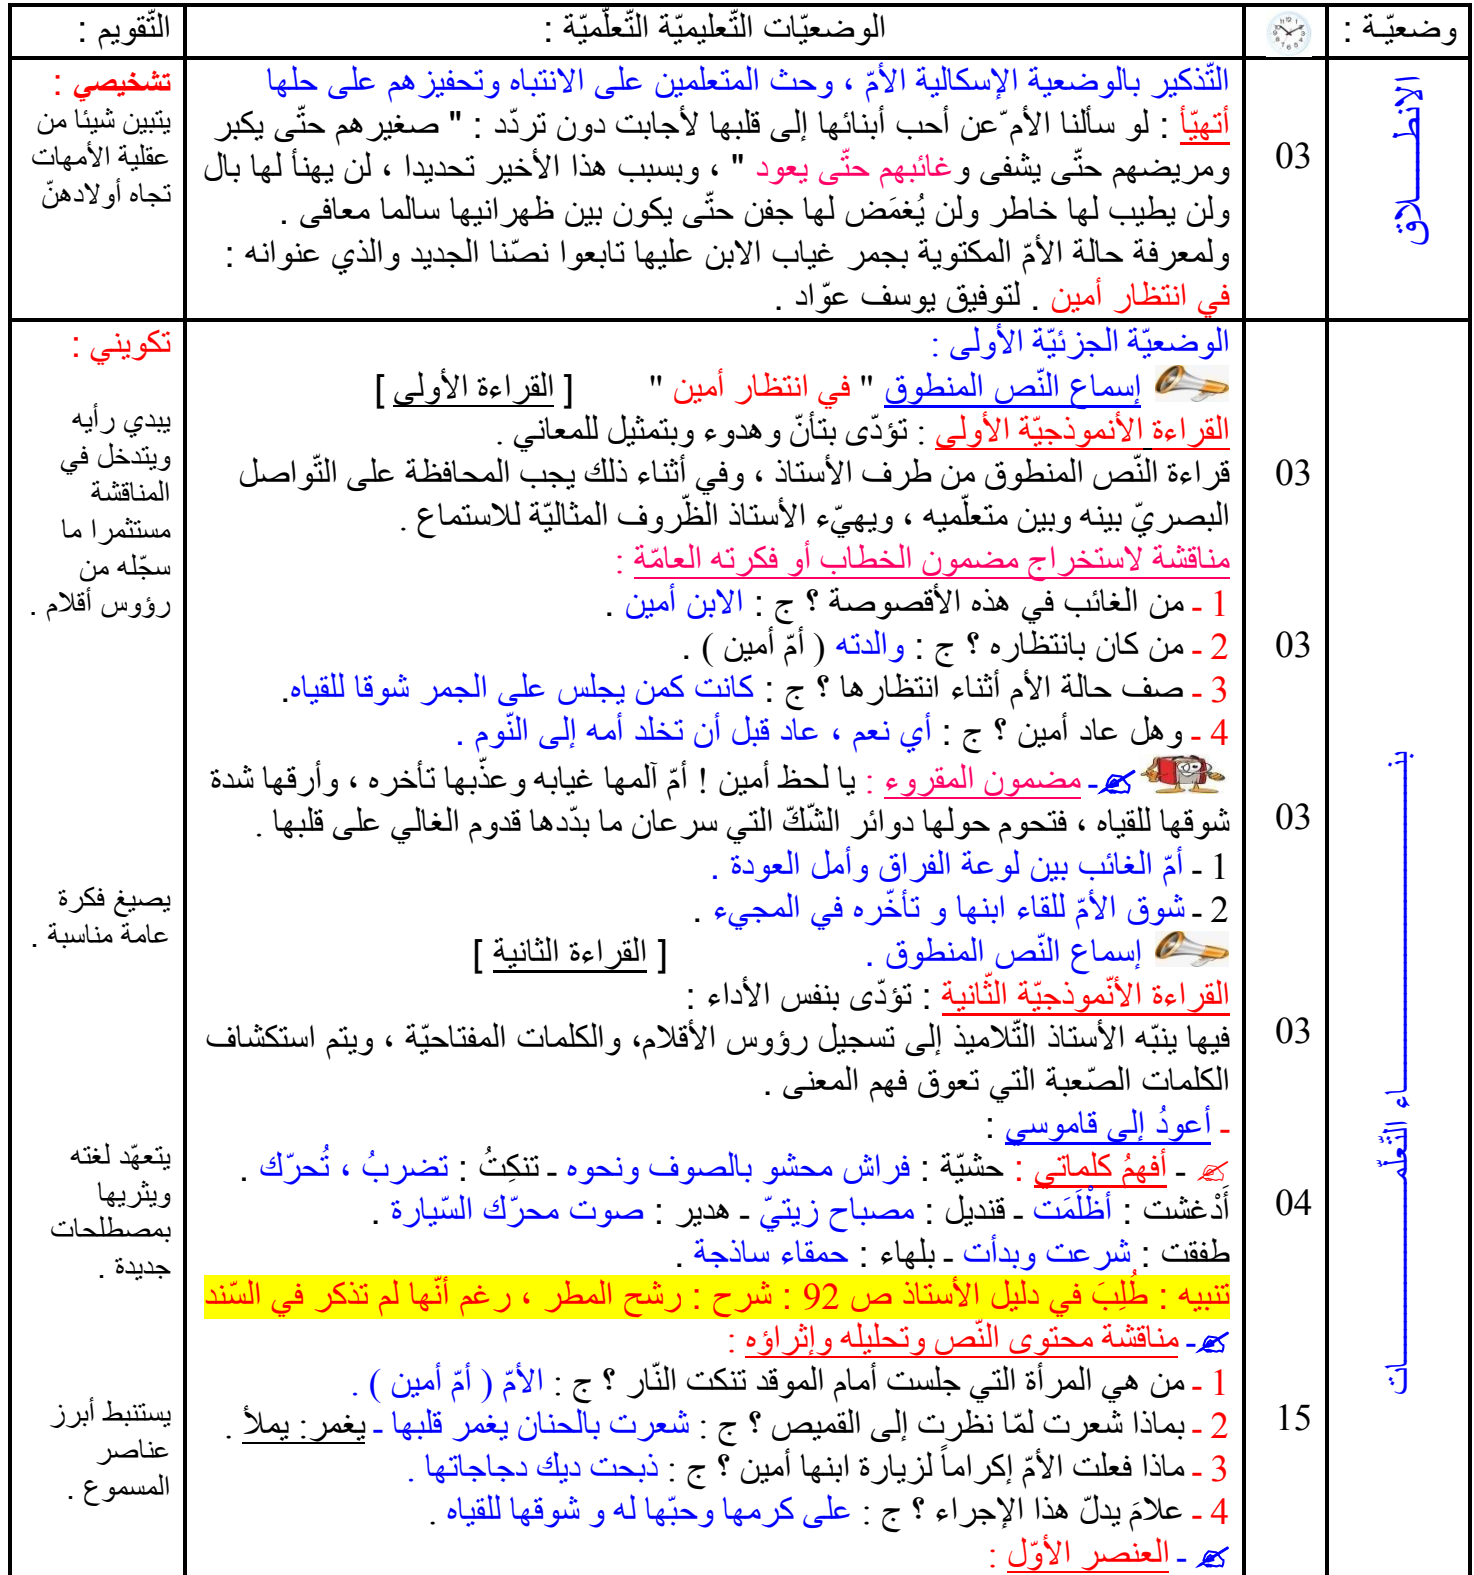 وضعيّـة :
الوضعيّات التّعليميّة التّعلّميّة :
التّقويم :
الانطــــــلاق
03
التّذكير بالوضعية الإسكالية الأمّ ، وحث المتعلمين على الانتباه وتحفيزهم على حلها
أتهيّأ : لو سألنا الأم ّعن أحب أبنائها إلى قلبها لأجابت دون تردّد : " صغيرهم حتّى يكبر
ومريضهم حتّى يشفى وغائبهم حتّى يعود " ، وبسبب هذا الأخير تحديدا ، لن يهنأ لها بال
ولن يطيب لها خاطر ولن يُغمَض لها جفن حتّى يكون بين ظهرانيها سالما معافى .
ولمعرفة حالة الأمّ المكتوية بجمر غياب الابن عليها تابعوا نصّنا الجديد والذي عنوانه :
في انتظار أمين . لتوفيق يوسف عوّاد .
تشخيصي :
يتبين شيئا من
عقلية الأمهات
تجاه أولادهنّ
بنــــــــــــــــــــاء التّعلّمــــــــــــــــــــات
الوضعيّة الجزئيّة الأولى :
إسماع النّص المنطوق " في انتظار أمين " [ القراءة الأولى ]
القراءة الأنموذجيّة الأولى : تؤدّى بتأنّ وهدوء وبتمثيل للمعاني .
03
قراءة النّص المنطوق من طرف الأستاذ ، وفي أثناء ذلك يجب المحافظة على التّواصل
البصريّ بينه وبين متعلّميه ، ويهيّء الأستاذ الظّروف المثاليّة للاستماع .
مناقشة لاستخراج مضمون الخطاب أو فكرته العامّة :
1 ـ من الغائب في هذه الأقصوصة ؟ ج : الابن أمين .
03
2 ـ من كان بانتظاره ؟ ج : والدته ( أمّ أمين ) .
3 ـ صف حالة الأم أثناء انتظارها ؟ ج : كانت كمن يجلس على الجمر شوقا للقياه.
4 ـ وهل عاد أمين ؟ ج : أي نعم ، عاد قبل أن تخلد أمه إلى النّوم .
ـ مضمون المقروء : يا لحظ أمين ! أمّ آلمها غيابه وعذّبها تأخره ، وأرقها شدة
03
شوقها للقياه ، فتحوم حولها دوائر الشّكّ التي سرعان ما بدّدها قدوم الغالي على قلبها .
1 ـ أمّ الغائب بين لوعة الفراق وأمل العودة .
2 ـ شوق الأمّ للقاء ابنها و تأخّره في المجيء .
إسماع النّص المنطوق . [ القراءة الثانية ]
القراءة الأنّموذجيّة الثّانية : تؤدّى بنفس الأداء :
03
فيها ينبّه الأستاذ التّلاميذ إلى تسجيل رؤوس الأقلام، والكلمات المفتاحيّة ، ويتم استكشاف
الكلمات الصّعبة التي تعوق فهم المعنى .
ـ أعودُ إلى قاموسي :
ـ أفهمُ كلماتي : حشيّة : فراش محشو بالصوف ونحوه ـ تنكِتُ : تضربُ ، تُحرّك .
04
أَدْغشت : أظْلَمَت ـ قنديل : مصباح زيتيّ ـ هدير : صوت محرّك السّيارة .
طفقت : شرعت وبدأت ـ بلهاء : حمقاء ساذجة .
تنبيه : طُلِبَ في دليل الأستاذ ص 92 : شرح : رشح المطر ، رغم أنّها لم تذكر في السّند
ـ مناقشة محتوى النّص وتحليله وإثراؤه :
1 ـ من هي المرأة التي جلست أمام الموقد تنكت النّار ؟ ج : الأمّ ( أمّ أمين ) .
15
2 ـ بماذا شعرت لمّا نظرت إلى القميص ؟ ج : شعرت بالحنان يغمر قلبها ـ يغمر: يملأ .
3 ـ ماذا فعلت الأمّ إكراماً لزيارة ابنها أمين ؟ ج : ذبحت ديك دجاجاتها .
4 ـ علامَ يدلّ هذا الإجراء ؟ ج : على كرمها وحبّها له و شوقها للقياه .
ـ العنصر الأوّل :
تكويني :
يبدي رأيه
ويتدخل في
المناقشة
مستثمرا ما
سجّله من
رؤوس أقلام .
يصيغ فكرة
عامة مناسبة .
يتعهّد لغته
ويثريها
بمصطلحات
جديدة .
يستنبط أبرز
عناصر
المسموع .